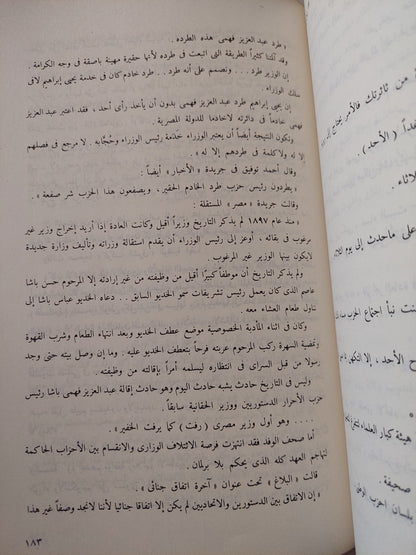 « طرد عبد العزيز فهمى هذه الطرده .
وقد آلمنا كثيراً الطريقة التى اتبعت فى طرده لأنها حقيرة مهينة باصقة فى وجه الكرامة .
إن الوزير طرد .. ونصمم على أنه طرد .. طرد خادم كان فى خدمة يحيى إبراهيم لافى
سلك الوزراء .
إن يحيى إبراهيم طرد عبد العزيز فهمى بدون أن يأخذ رأى أحد ، فقد اعتبر عبد العزيز
فهمى خادماً فى دائرته لاخادماً للدولة المصرية .
وتكون النتيجة أيضاً أن يعتبر الوزراء خدمة رئيس الوزراء وحُجّابه .. لا مرجع فى فصلهم
إلا له ولاكلمة فى طردهم إلا له » .
وقال أحمد توفيق فى جريدة « الأخبار » أيضاً :
« يطردون رئيس حزب طرد الخادم الحقير ، ويصفعون هذا الحزب شر صفعة » .
وقالت جريدة « مصر » المستقلة :
« منذ عام ١٨٩٧ لم يذكر التاريخ وزيراً أقيل وكانت العادة إذا أريد إخراج وزير غير
مرغوب فى بقائه ، أوعز إلى رئيس الوزراء أن يقدم استقالة وزراته وتأليف وزارة جديدة
لايكون بينها الوزير غير المرغوب .
ولم يذكر التاريخ أن موظفاً كبيراً أقيل من وظيفته من غير إرادته إلا المرحوم حسن باشا
عاصم الذى كان يعمل رئيس تشريفات سمو الخديو السابق .. دعاه الخديو عباس باشا إلى
تناول طعام العشاء معه .
وكان فى أثناء المأدبة الخصوصية موضع عطف الخديو وبعد انتهاء الطعام وشرب القهوة
وتمضية السهرة ركب المرحوم عربته فرحاً بتعطف الخديو عليه .. وما إن وصل بيته حتى وجد
رسولا من قبل السراى فى انتظاره ليسلمه أمراً بإقالته من وظيفته .
وليس فى التاريخ حادث يشبه حادث اليوم وهو حادث إقالة عبد العزيز فهمى باشا رئيس
حزب الأحرار الدستوريين ووزير الحقانية سابقاً .
.... وهو أول وزير مصرى ( رفت ) كما يرفت الخفير » .
أما صحف الوفد فقد انتهزت فرصة الائتلاف الوزارى والانقسام بين الأحزاب الحاكمة
لتهاجم العهد كله الذى يحكم بلا برلمان .
قالت « البلاغ » تحت عنوان « آخرة اتفاق جنائى » .
« إن الاتفاق بين الدستوريين والاتحاديين لم يكن إلا اتفاقا جنائيا لأننا لانجد وصفاً غير هذا
١٨٣
من ثائرتك فالأمر
غداً ( الأحد ) .
على ماحدث إلى يوم
نبأ اجتماع الحزب
الأحد ، إلا
هيئة كبار العلماء
صحيفة .
بلسان الحزب